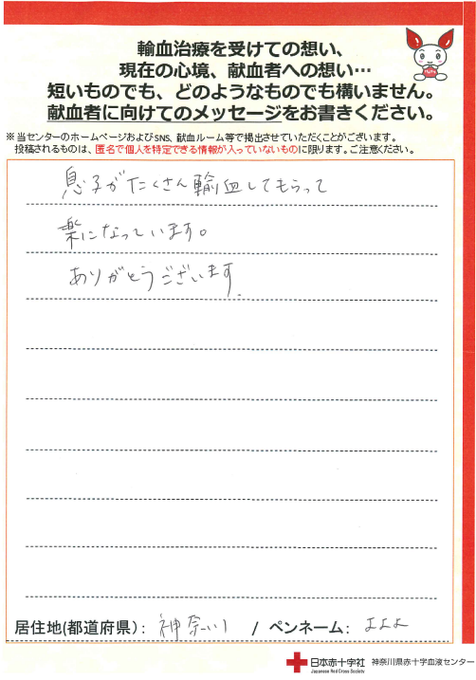 輸血治療を受けての想い、
現在の心境、献血者への想い…
短いものでも、どのようなものでも構いません。
献血者に向けてのメッセージをお書きください。
※当センターのホームページおよびSNS、献血ルーム等で掲出させていただくことがございます。
投稿されるものは、匿名で個人を特定できる情報が入っていないものに限ります。ご注意ください。
息子がたくさん輸血してもらって
楽になっています。
ありがとうございます.
居住地(都道府県): 神奈川 / ペンネーム: よよよ
日本赤十字社 神奈川県赤十字血液センター
Japanese Red Cross Society